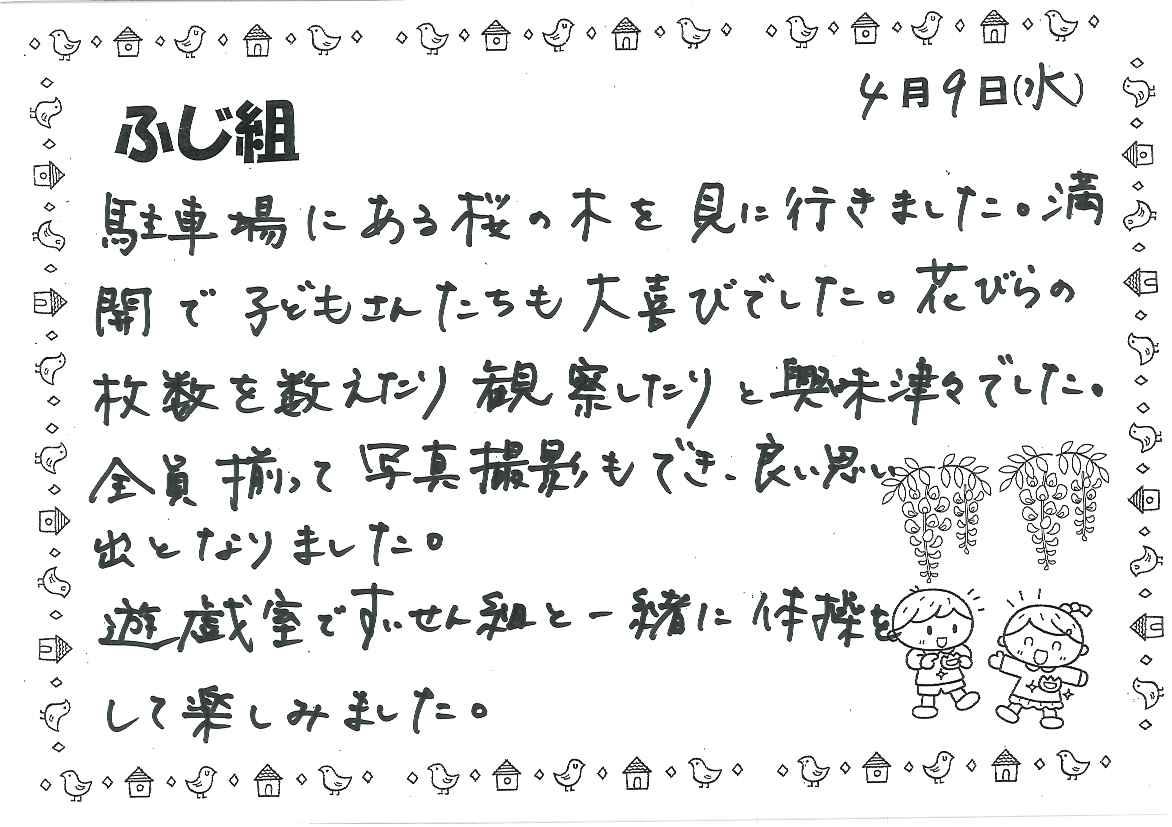 4月9日(水)
ふじ組
駐車場にある桜の木を見に行きました。満
開で子どもさんたちも大喜びでした。花びらの
枚数を数えたり観察したりと興味津々でした。
全員揃って写真撮影もでき、良い思い
出となりました。
遊戯室ですいせん組と一緒に体操を
して楽しみました。